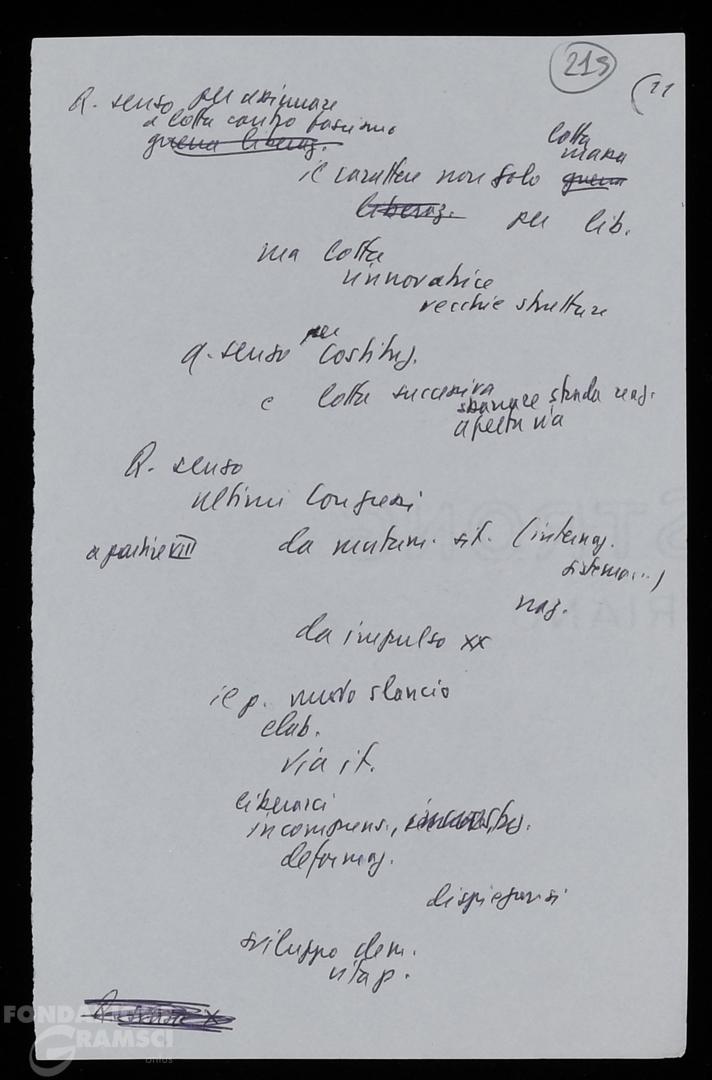 219
(11
Q. senso per assicurare
a lotta contro fascismo
guerra liberaz.
lotta
massa
il carattere non solo guerra
liberaz. per lib.
ma lotta
rinnovatrice
vecchie strutture
q. senso per Costituz.
e lotta successiva
sbarrare strada reaz.
aperta via
Q. senso
ultimi Congressi
a partire VIII da mutam. sit. (internaz.
sistema...)
naz.
da impulso XX
il p. nuovo slancio
elab.
via it.
liberarci
incomprens.,
deformaz.
dispiegarsi
sviluppo dem.
vita p.
FONDAZIONE
GRAMSCI
onlus